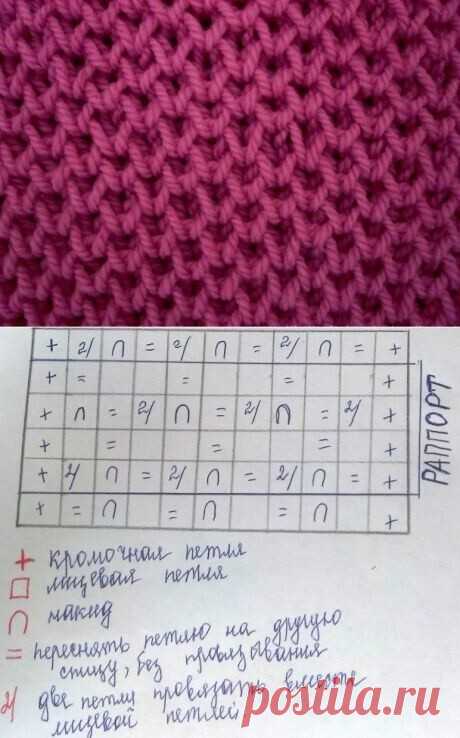 + 2/ ∩ = 2/ ∩ = 2/ ∩ = +
+ = = = +
+ ∩ = 2/ ∩ = 2/ ∩ = 2/ +
+ = = = +
+ 2/ ∩ = 2/ ∩ = 2/ ∩ = +
+ = ∩ = ∩ = ∩ +
РАППОРТ
+ кромочная петля
□ лицевая петля
∩ накид
= переснять петлю на другую
спицу, без провязывания
2/ две петли провязать вместе
лицевой петлей
postila.ru